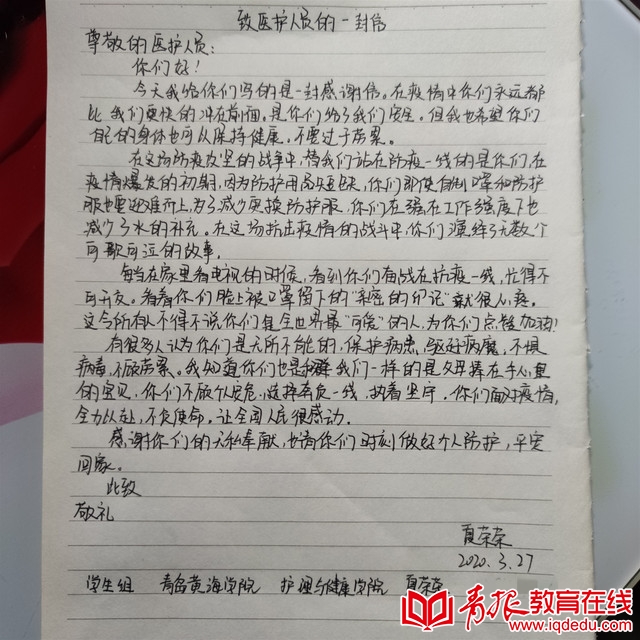 致医护人员的一封信
尊敬的医护人员：
你们好！
今天我给你们写的是一封感谢信。在疫情中你们永远都
比我们更快的冲在前面。是你们给了我们安全。但我也希望你们
自己的身体也可以保持健康。不要过于劳累。
在这场防疫攻坚的战争中，替我们站在防疫一线的是你们，在
疫情爆发的初期，因为防护用品短缺，你们即使自制口罩和防护
服也要迎难而上，为了减少更换防护服，你们在强在工作强度下也
减少了水的补充。在这场抗击疫情的战斗中，你们演绎了无数个
可歌可泣的故事。
每当在家里看电视的时候，看到你们奋战在抗疫一线，忙得不
可开交。看着你们脸上被口罩留下的“亲密的印记”就很心疼。
这令所有人不得不说你们是全世界最“可爱”的人，为你们点赞加油！
有很多人认为你们是无所不能的，保护病患，驱赶病魔，不惧
病毒，不顾劳累。我知道你们也是和我们一样的是父母捧在手心里
的宝贝，你们不顾个人安危，选择奔赴一线，执着坚守。你们面对疫情，
全力以赴，不负使命，让全国人民很感动。
感谢你们的无私奉献，也请你们时刻做好个人防护，平安
回家。
此致
敬礼
夏荣荣
2020.3.27
学生组 青岛黄海学院 护理与健康学院 夏荣荣
青报教育在线
www.iqdedu.com